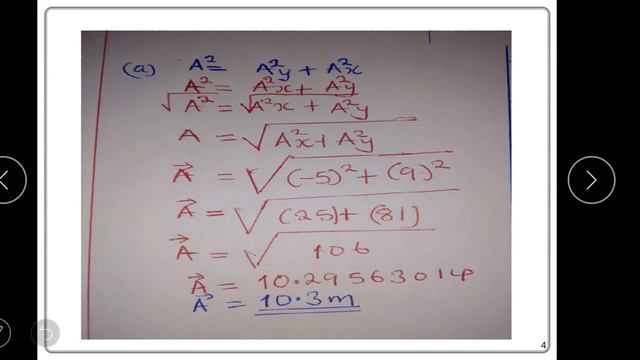 (a) A² = A²y + A²x
A² = A²x + A²y
√A² = √A²x + A²y
A = √A²x + A²y
A⃗ = √(-5)² + (9)²
A⃗ = √(25) + (81)
A⃗ = √106
A⃗ = 10.29563014
A⃗ = 10.3m
4